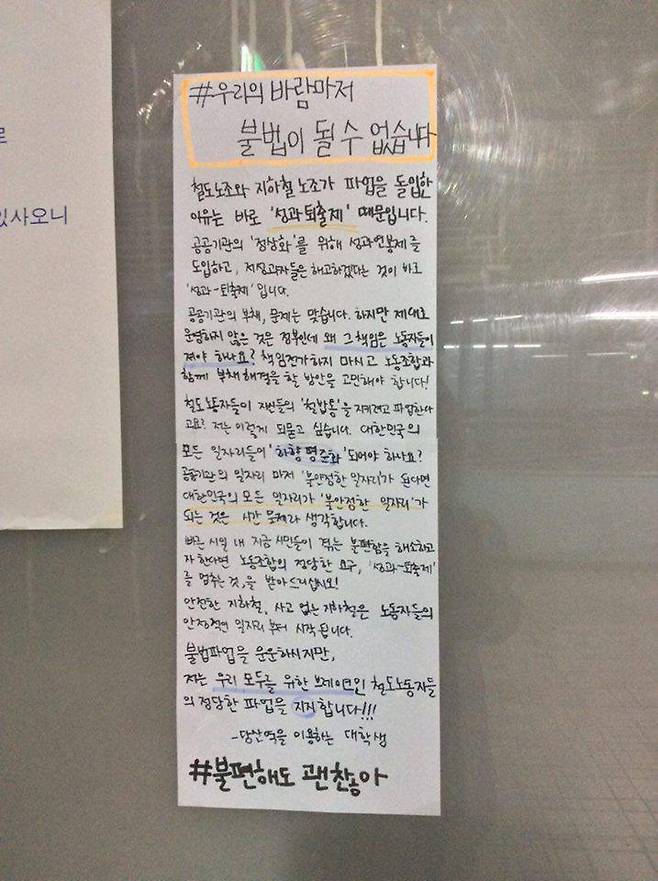 로
있사오니
#우리의 바람마저
불법이 될 수 없습니다
철도노조와 지하철 노조가 파업을 돌입한
이유는 바로 '성과퇴출제' 때문입니다.
공공기관의 '정상화'를 위해 성과연봉제를
도입하고, 저성과자들은 해고하겠다는 것이 바로
'성과-퇴출제'입니다.
공공기관의 부채, 문제는 맞습니다. 하지만 제대로
운영하지 않은 것은 정부인데 왜 그 책임은 노동자들이
져야 하나요? 책임전가하지 마시고 노동조합과
함께 부채해결을 할 방안을 고민해야 합니다!
철도노동자들이 자신들의 '철밥통'을 지키려고 파업한다
고요? 저는 이렇게 되묻고 싶습니다. 대한민국의
모든 일자리들이 '하향 평준화' 되어야 하나요?
공공기관의 일자리 마저 '불안정한 일자리'가 된다면
대한민국의 모든 일자리가 '불안정한 일자리'가
되는 것은 시간 문제라 생각합니다.
빠른 시일 내 지금 시민들이 겪는 불편함을 해소하고
자 한다면 노동조합의 정당한 요구, '성과-퇴출제'
를 멈추는 것,을 받아드리십시오!
안전한 지하철, 사고 없는 지하철은 노동자들의
안정적인 일자리 부터 시작됩니다.
불법파업을 운운하시지만,
저는 우리 모두를 위한 브레이크인 철도노동자들
의 정당한 파업을 지지합니다!!!
-당산역을 이용하는 대학생
#불편해도 괜찮아